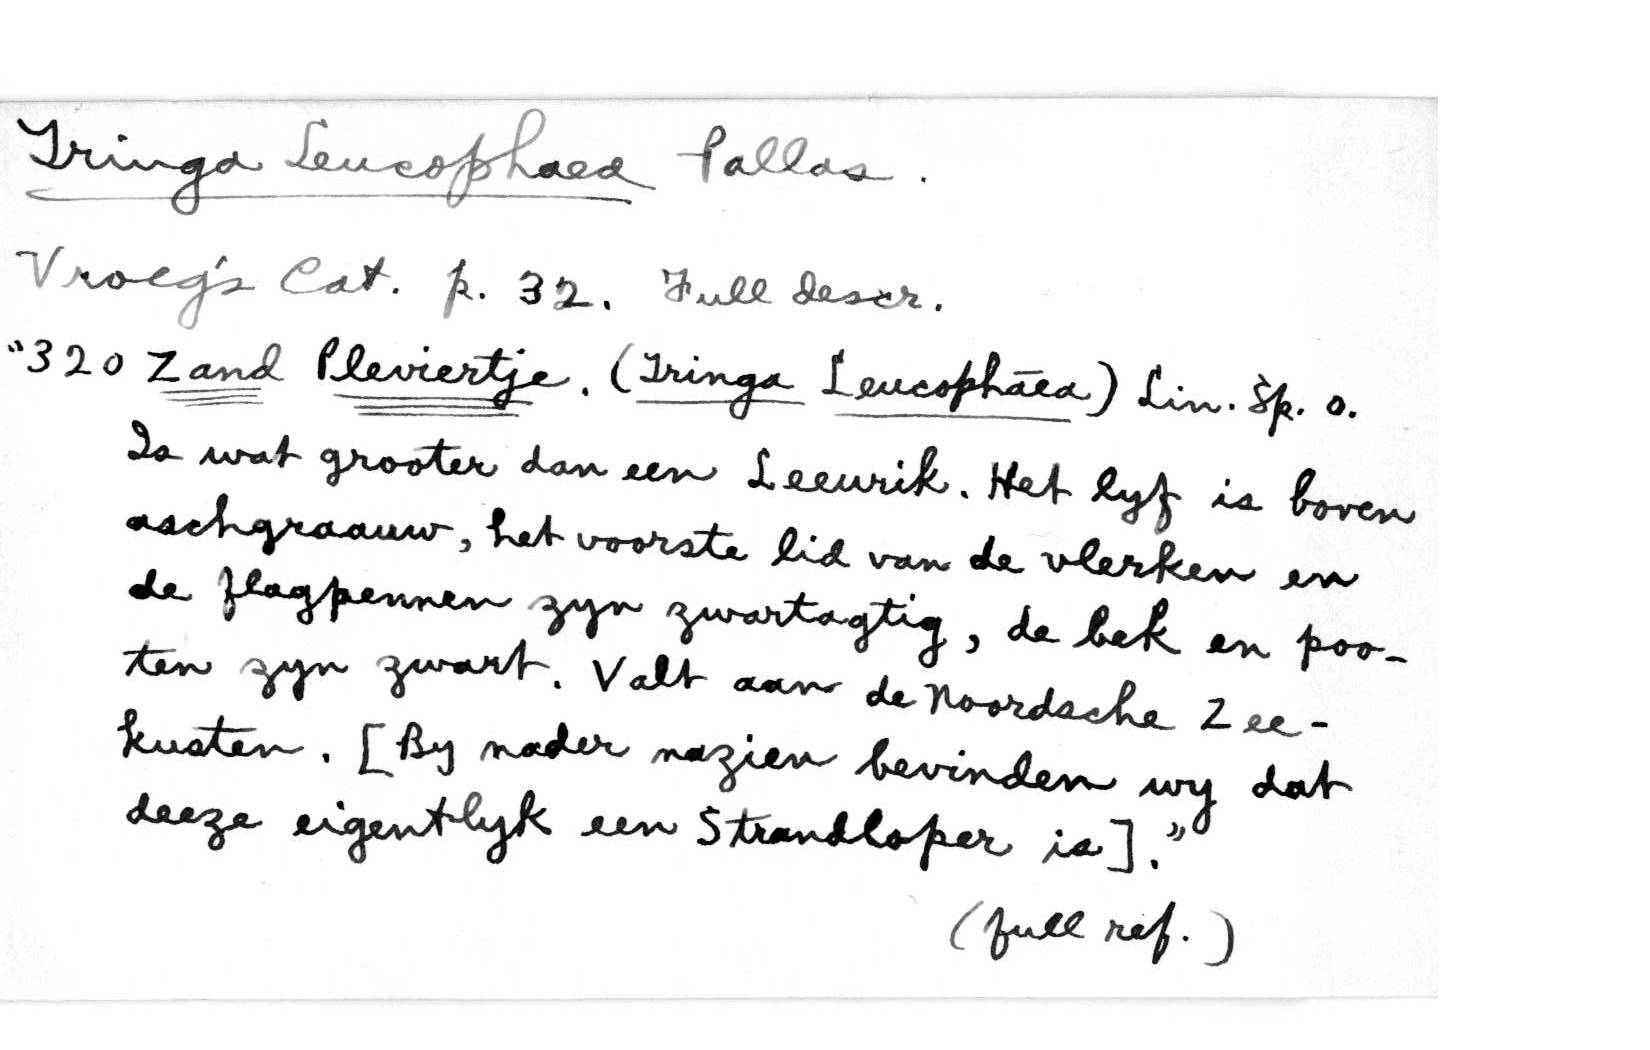 Tringa Leucophaea Pallas.
Vroeg's Cat. p. 32. Full descr.
"320 Zand Pleviertje. (Tringa Leucophāea) Lin. Sp. o.
Is wat grooter dan een Leeurik. Het lyf is boven
aschgraauw, het voorste lid van de vlerken en
de flagpennen zyn zwartagtig, de bek en poo-
ten zyn zwart. Valt aan de Noordsche Zee-
kusten. [By nader nazien bevinden wy dat
deeze eigentlyk een Strandloper is]."
(full ref.)